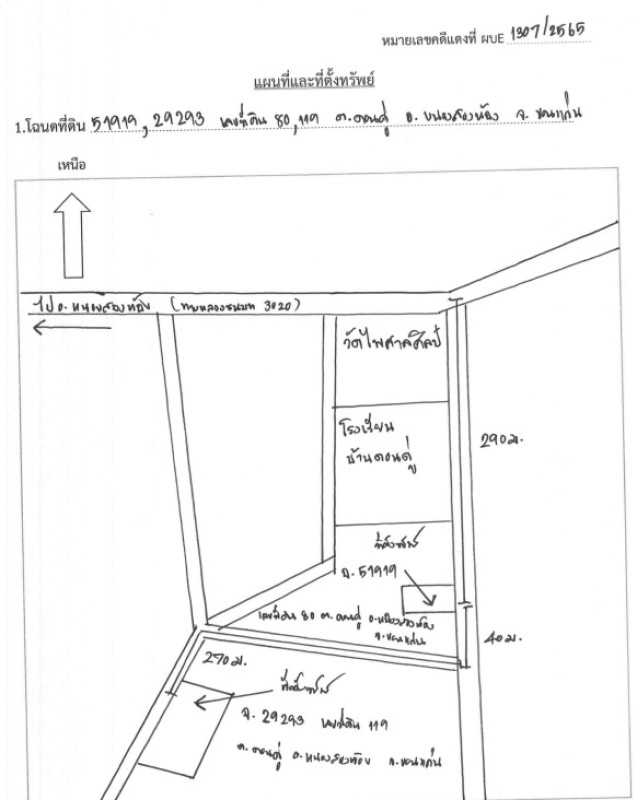 หมายเลขคดีแดงที่ ผบE 1307/2565
แผนที่และที่ตั้งทรัพย์
1.โฉนดที่ดิน 51919, 29293 เลขที่ดิน 80, 119 ต.ดอนดู่ อ. หนองสองห้อง จ. ขอนแก่น
เหนือ
ไป อ. หนองสองห้อง (ทางหลวงชนบท 3020)
วัดไพศาลศิลป์
โรงเรียน
บ้านดอนดู่
290 ม.
ที่ตั้งทรัพย์
ฉ. 51919
เลขที่ดิน 80 ต. ดอนดู่ อ.หนองสองห้อง
จ.ขอนแก่น
40 ม.
270 ม.
ที่ตั้งทรัพย์
ฉ. 29293 เลขที่ดิน 119
ต. ดอนดู่ อ.หนองสองห้อง จ.ขอนแก่น